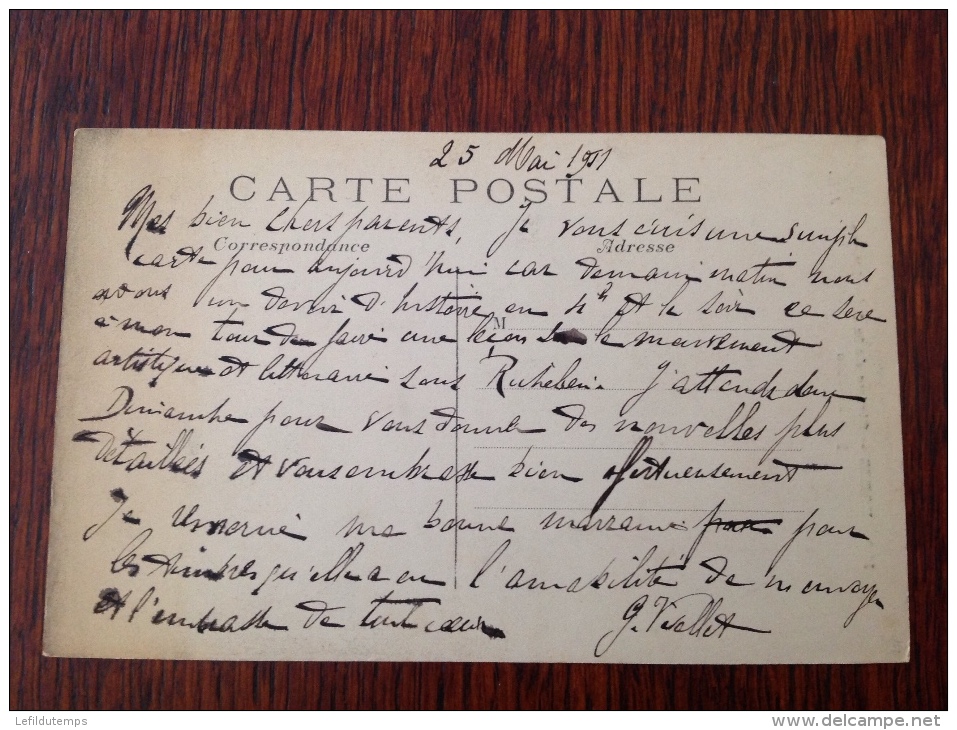 25 Mai 1911
CARTE POSTALE
Mes bien chers parents, Je vous écris une simple
Correspondance Adresse
carte pour aujourd'hui car demain matin nous
avons un devoir d'histoire en 4h et le soir ce sera
M
à mon tour de faire une leçon le mouvement
artistique et littéraire sous Richelieu. J'attends donc
Dimanche pour vous donner des nouvelles plus
détaillées et vous embrasse bien affectueusement
Je remercie ma bonne marraine pour
les timbres qu'elle a eu l'amabilité de m'envoyer
et l'embrasse de tout cœur
G. Viollet
Lefildutemps
www.delcampe.net